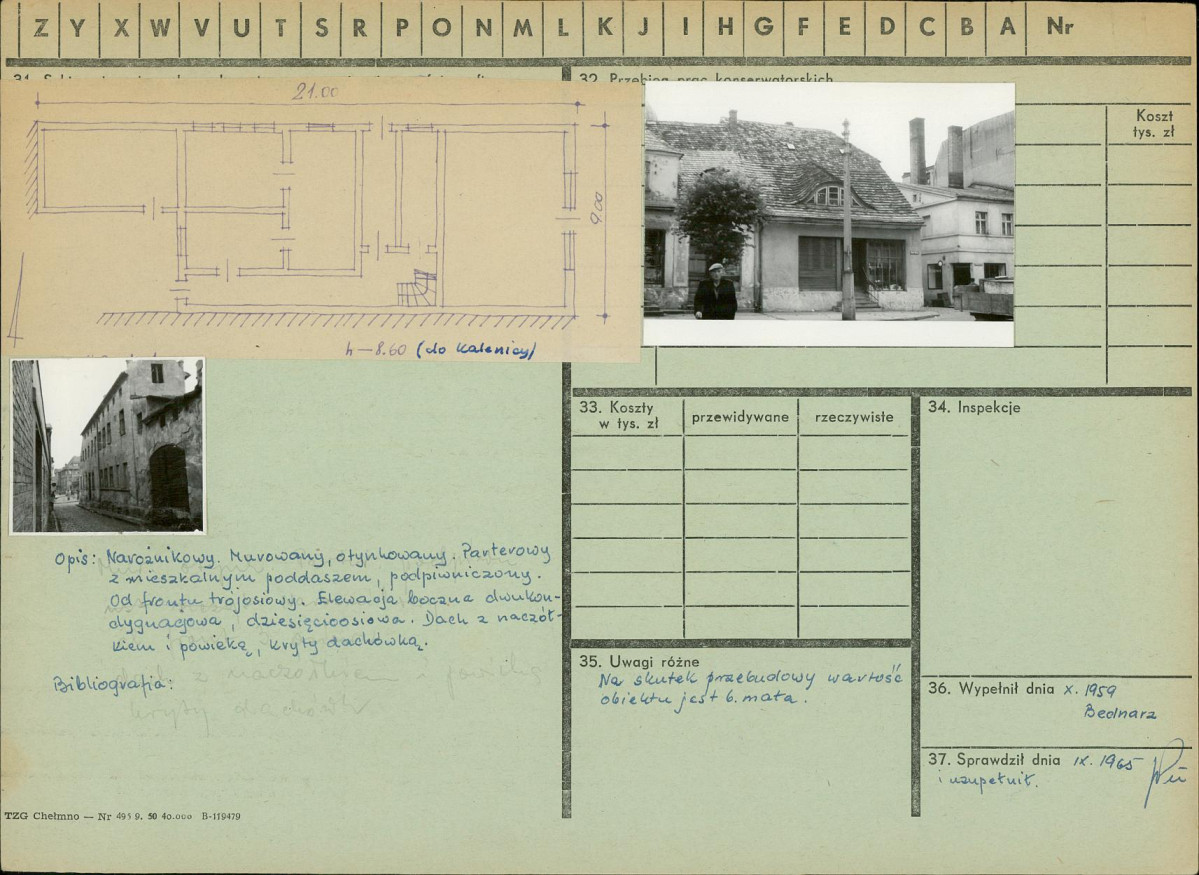 Z Y X W V U T S R P O N M L K J I H G F E D C B A Nr
32. Przebieg prac konserwatorskich
Koszt
tys. zł
21.00
9.00
h — 8.60 (do kalenicy)
33. Koszty
w tys. zł
przewidywane
rzeczywiste
34. Inspekcje
Opis: Narożnikowy. Murowany, otynkowany. Parterowy
z mieszkalnym poddaszem, podpiwniczony.
Od frontu trójosiowy. Elewacja boczna dwukon-
dygnacjowa, dziesięcioosiowa. Dach z naczół-
kiem i powieką, kryty dachówką.
Bibliografia:
z naczółkiem i powieką
kryty dachówk
35. Uwagi różne
Na skutek przebudowy wartość
obiektu jest b. mała.
36. Wypełnił dnia X. 1959
Bednarz
37. Sprawdził dnia IX. 1965
i uzupełnił.
TZG Chełmno — Nr 495 9. 50 40.000 B-119479